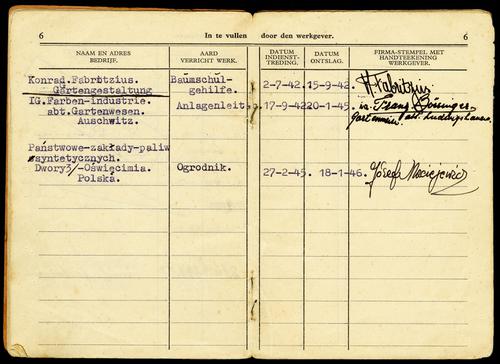 6 In te vullen door den werkgever. 6
NAAM EN ADRES BEDRIJF. AARD VERRICHT WERK. DATUM INDIENST-TREDING. DATUM ONTSLAG. FIRMA-STEMPEL MET HANDTEEKENING WERKGEVER.
Konrad.Fabritzius. Baumschul- 2-7-42. 15-9-42. Fabritzius
Gärtengestaltung gehilfe.
IG.Farben-industrie. Anlagenleit. 17-9-42 20-1-45. Franz
abt.Gartenwesen. Gartenmeister
Auschwitz.
Państwowe-zakłady-paliw
syntetycznych.
Dwory3/-Oświęcimia. Ogrodnik. 27-2-45. 18-1-46. Józefa Maciejewicz
Polska.